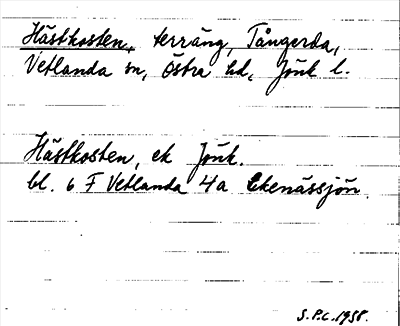 Hästkosten, terräng, Tångerda,
Vetlanda sn, Östra hd, Jönk l.
Hästkosten, ek Jönk.
bl. 6 F Vetlanda 4a Ekenässjön.
S.P.C. 1958.